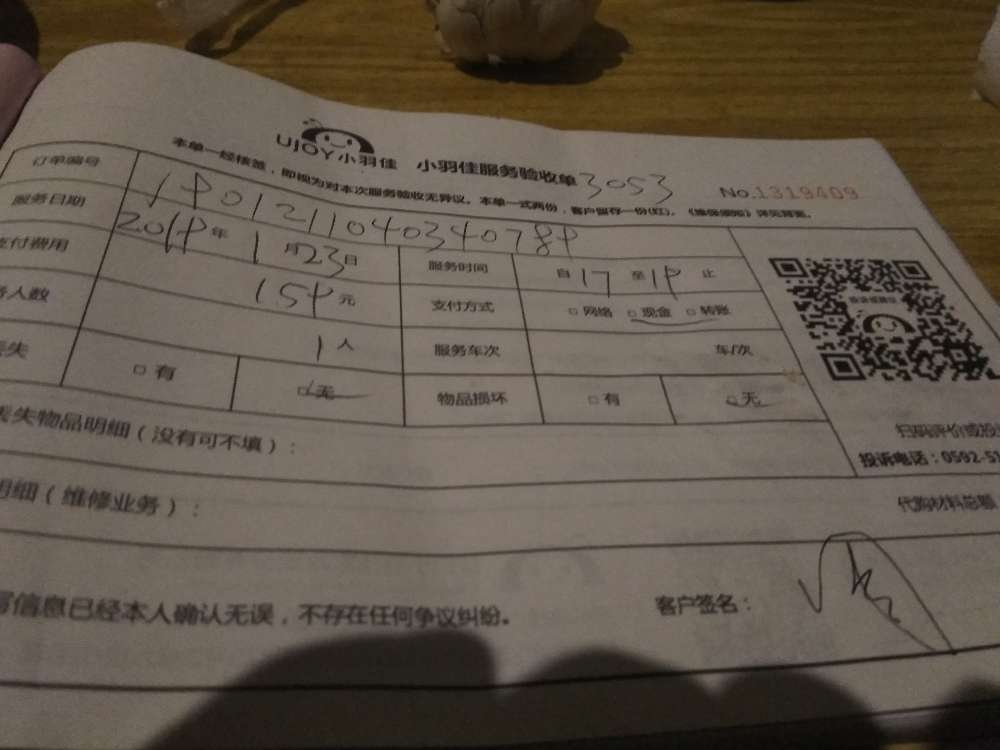 UJOY小羽佳 小羽佳服务验收单 3053
No.1319409
本单一经核签，即视为对本次服务验收无异议。本单一式两份，客户留存一份(红)。
订单编号 1901211040340789
服务日期 2019年1月23日 服务时间 自17至19止
支付费用 159元 支付方式 □网络 □现金 □转账
人数 1人 服务车次 车/次
失 □有 □无 物品损坏 □有 □无
丢失物品明细（没有可不填）：
扫码评价或投
投诉电话：0592-51
明细（维修业务）：
代购材料总额
写信息已经本人确认无误，不存在任何争议纠纷。
客户签名：